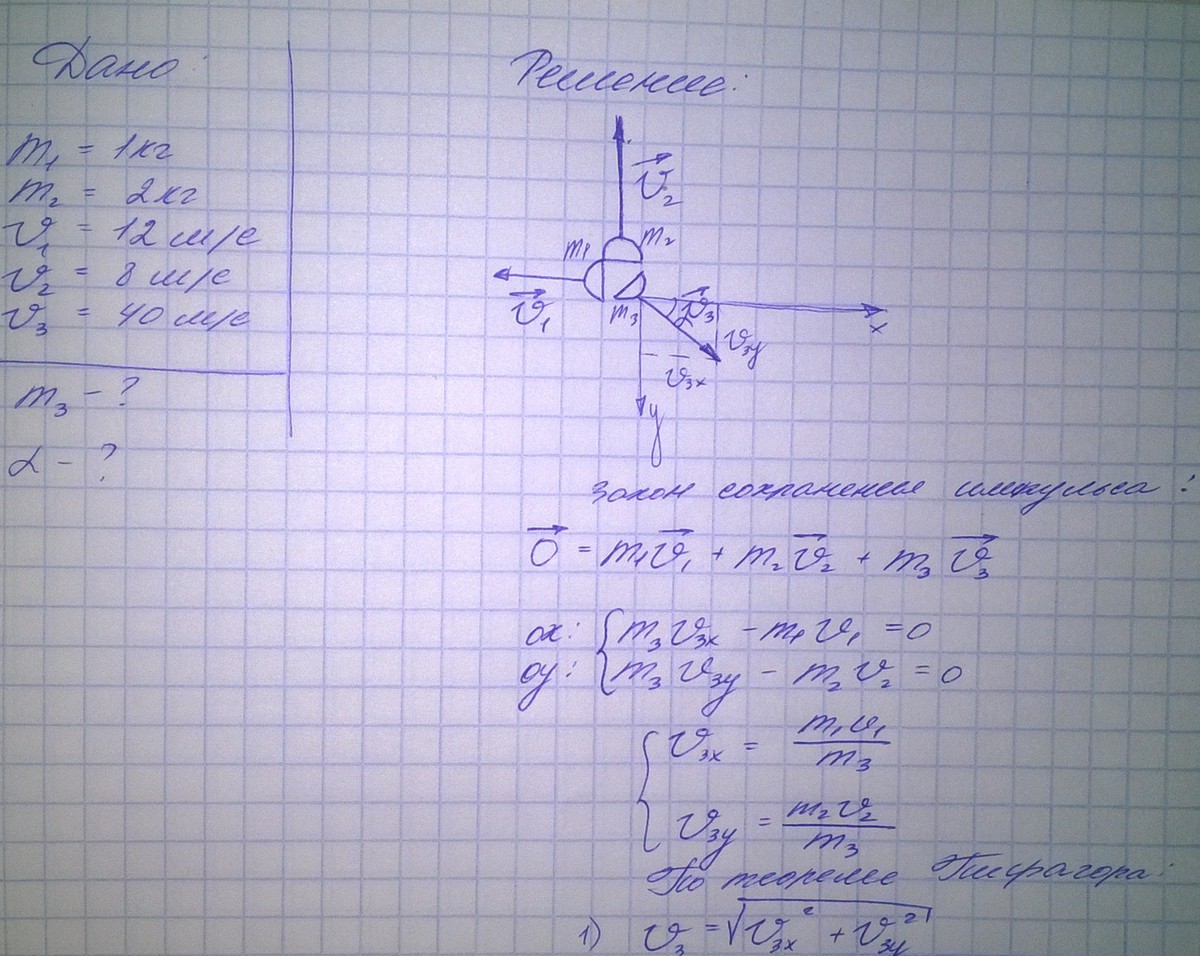 Дано:
m₁ = 1кг
m₂ = 2кг
v₁ = 12 м/с
v₂ = 8 м/с
v₃ = 40 м/с
m₃ – ?
α – ?
Решение:
v⃗₂
m₁ m₂
v⃗₁ m₃ α v⃗₃ x
v₃y
v₃x
y
Закон сохранения импульса:
0⃗ = m₁v⃗₁ + m₂v⃗₂ + m₃v⃗₃
ox: { m₃v₃x – m₁v₁ = 0
oy: { m₃v₃y – m₂v₂ = 0
{ v₃x = m₁v₁/m₃
v₃y = m₂v₂/m₃
По теореме Пифагора:
1) v₃ = √(v₃x² + v₃y²)